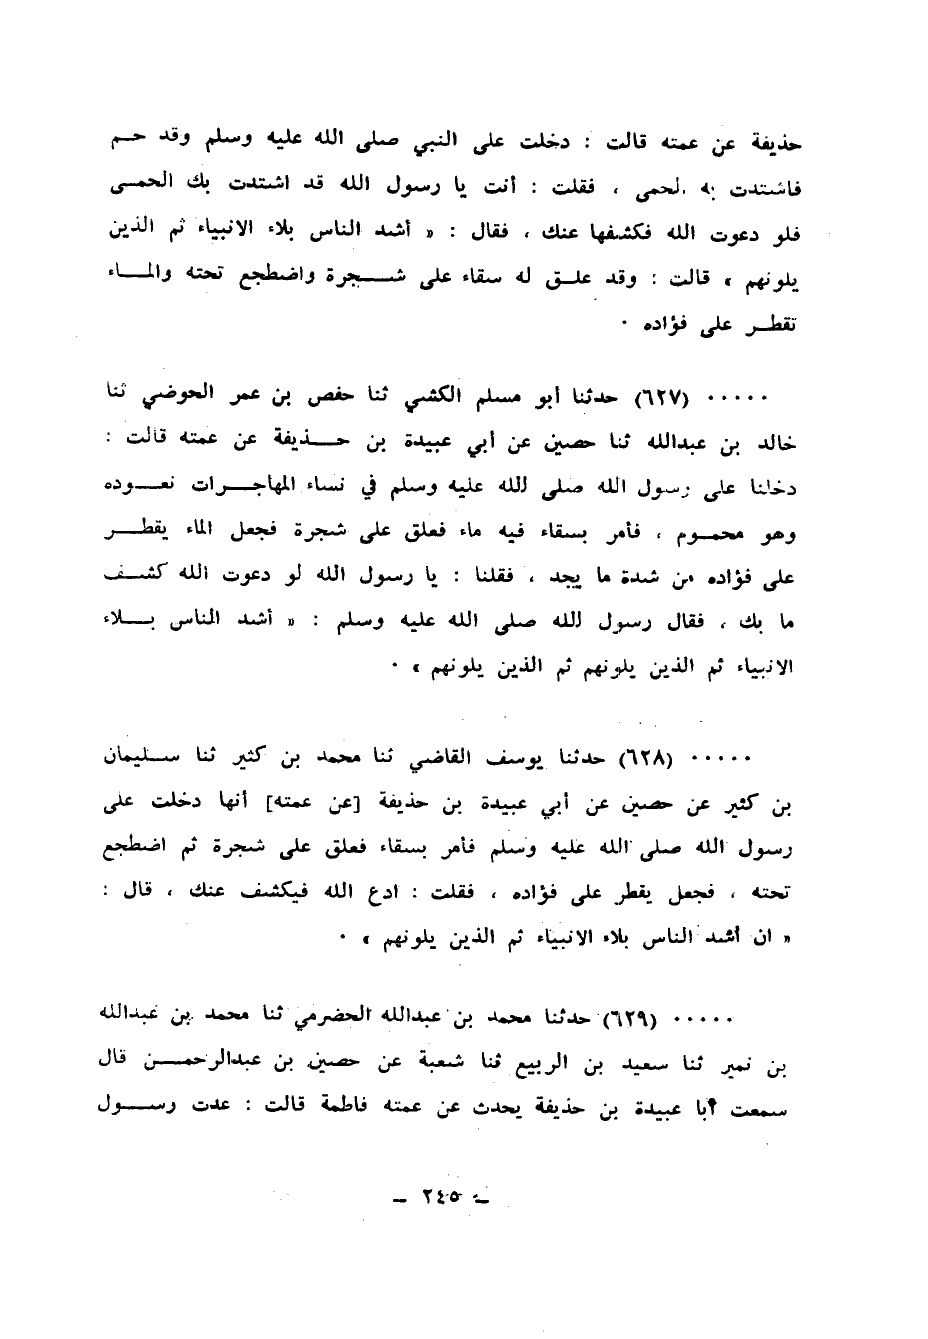 حذيفة عن عمته قالت : دخلت على النبي صلى الله عليه وسلم وقد حم
فاشتدت به الحمى ، فقلت : أنت يا رسول الله قد اشتدت بك الحمى
فلو دعوت الله فكشفها عنك ، فقال : « أشد الناس بلاء الانبياء ثم الذين
يلونهم » قالت : وقد علق له سقاء على شجرة واضطجع تحته والماء
تقطر على فؤاده ٠
٠٠٠٠٠ (٦٢٧) حدثنا أبو مسلم الكشي ثنا حفص بن عمر الحوضي ثنا
خالد بن عبدالله ثنا حصين عن أبي عبيدة بن حذيفة عن عمته قالت :
دخلنا على رسول الله صلى الله عليه وسلم في نساء المهاجرات نعوده
وهو محموم ، فأمر بسقاء فيه ماء فعلق على شجرة فجعل الماء يقطر
على فؤاده من شدة ما يجد ، فقلنا : يا رسول الله لو دعوت الله كشف
ما بك ، فقال رسول الله صلى الله عليه وسلم : « أشد الناس بلاء
الانبياء ثم الذين يلونهم ثم الذين يلونهم » ٠
٠٠٠٠٠ (٦٢٨) حدثنا يوسف القاضي ثنا محمد بن كثير ثنا سليمان
بن كثير عن حصين عن أبي عبيدة بن حذيفة [عن عمته] أنها دخلت على
رسول الله صلى الله عليه وسلم فأمر بسقاء فعلق على شجرة ثم اضطجع
تحته ، فجعل يقطر على فؤاده ، فقلت : ادع الله فيكشف عنك ، قال :
« ان أشد الناس بلاء الانبياء ثم الذين يلونهم » ٠
٠٠٠٠٠ (٦٢٩) حدثنا محمد بن عبدالله الحضرمي ثنا محمد بن عبدالله
بن نمير ثنا سعيد بن الربيع ثنا شعبة عن حصين بن عبدالرحمن قال
سمعت أبا عبيدة بن حذيفة يحدث عن عمته فاطمة قالت : عدت رسول
– ٢٤٥ –